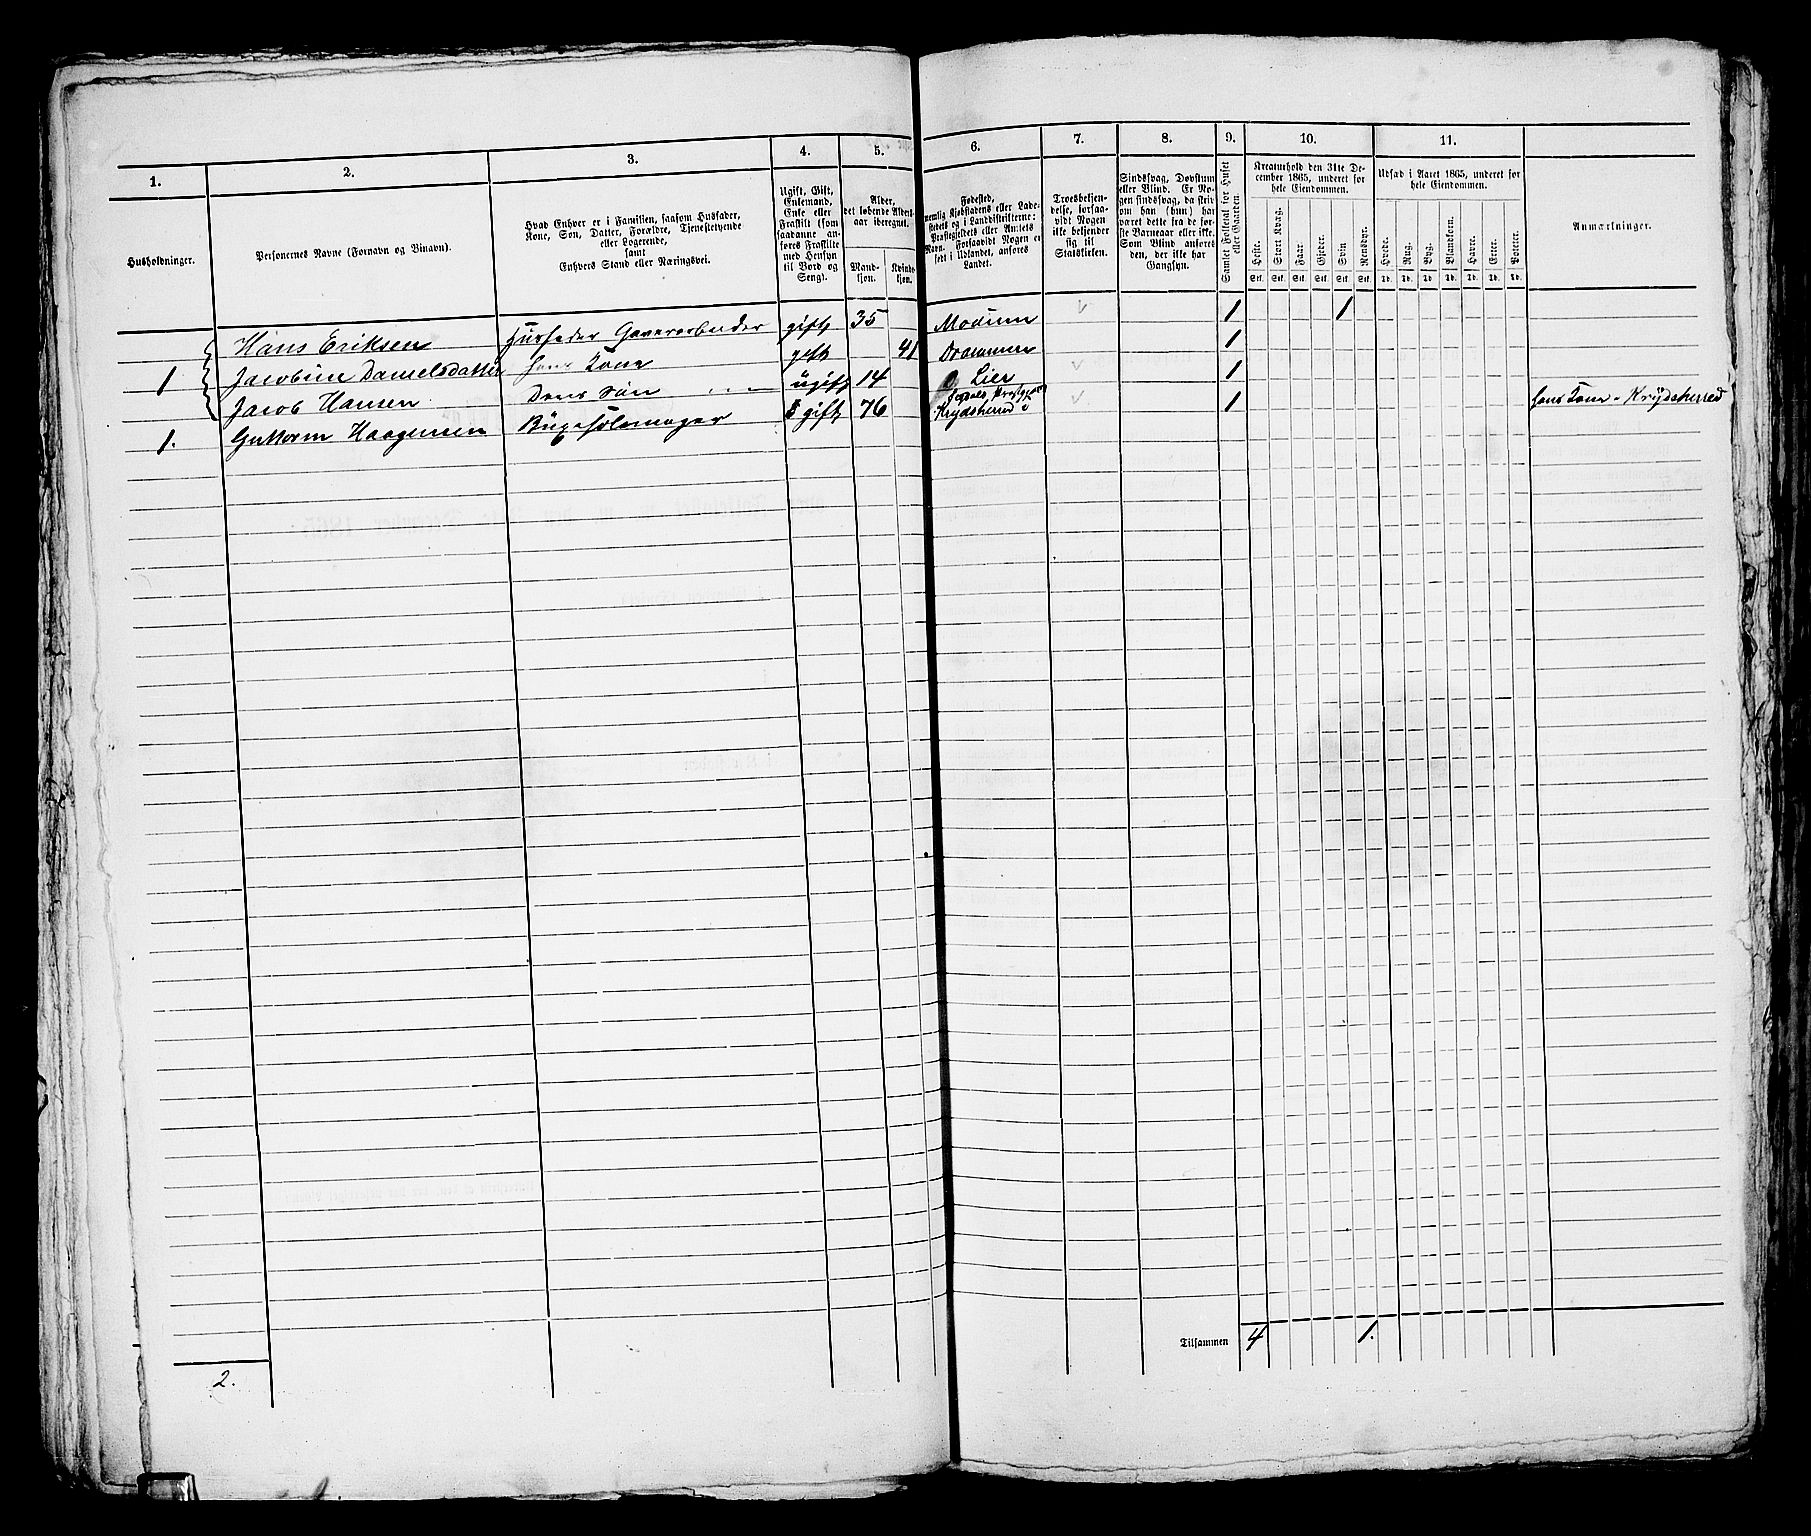 1. 2. 3. 4. 5. 6. 7. 8. 9. 10. 11.
Husholdninger.
Personernes Navne (Fornavn og Binavn).
Hvad Enhver er i Familien, saasom Husfader,
Kone, Søn, Datter, Forældre, Tjenestetyende
eller Logerende,
samt
Enhvers Stand eller Næringsvei.
Ugift, Gift,
Enkemand,
Enke eller
Fraskilt (som
saadanne an-
føres Fraskilte
med Hensyn
til Bord og
Seng).
Alder,
det løbende Alders-
aar iberegnet.
Mand-
kjøn.
Kvinde-
kjøn.
Fødested,
nemlig Kjøbstadens eller Lade-
stedets og i Landdistrikterne:
Præstegjeldets eller Amtets
Navn. Forsaavidt Nogen er
født i Udlandet, anføres
Landet.
Troesbekjen-
delse, forsaa-
vidt Nogen
ikke bekjender
sig til
Statskirken.
Sindssvag, Døvstum
eller Blind. Er No-
gen sindssvag, da skriv
om han (hun) har
været dette fra de før-
ste Barneaar eller ikke.
Som Blind anføres
den, der ikke har
Gangsyn.
Samlet Folketal for Huset
eller Gaarden.
Kreaturhold den 31te De-
cember 1865, underet for
hele Eiendommen.
Heste. Stort Kvæg. Faar. Gjeder. Svin. Rensdyr.
Stk. Stk. Stk. Stk. Stk. Stk.
Udsæd i Aaret 1865, underet for
hele Eiendommen.
Hvede. Rug. Byg. Blandkorn. Havre. Erter. Poteter.
Td. Td. Td. Td. Td. Td. Td.
Anmærkninger.
Hans Eriksen Husfader Gaverarbeider gift 35 Modum 1 1
1 Jacobine Danielsdatter hans Kone gift 41 Drammen 1
Jacob Hansen Deres Søn ugift 14 Lier 1
1. Guttorm Haagensen gift 76 Krydsherred 1 hans Kone i Krydsherred
Tilsammen 4 1.
2.